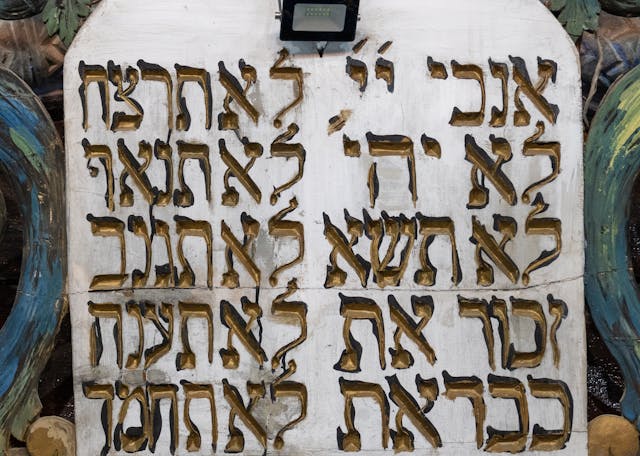 אנכי יי
לא יהי
לא תשא
זכור את
כבד את
לא תרצח
לא תנאף
לא תגנב
לא תענה
לא תחמד